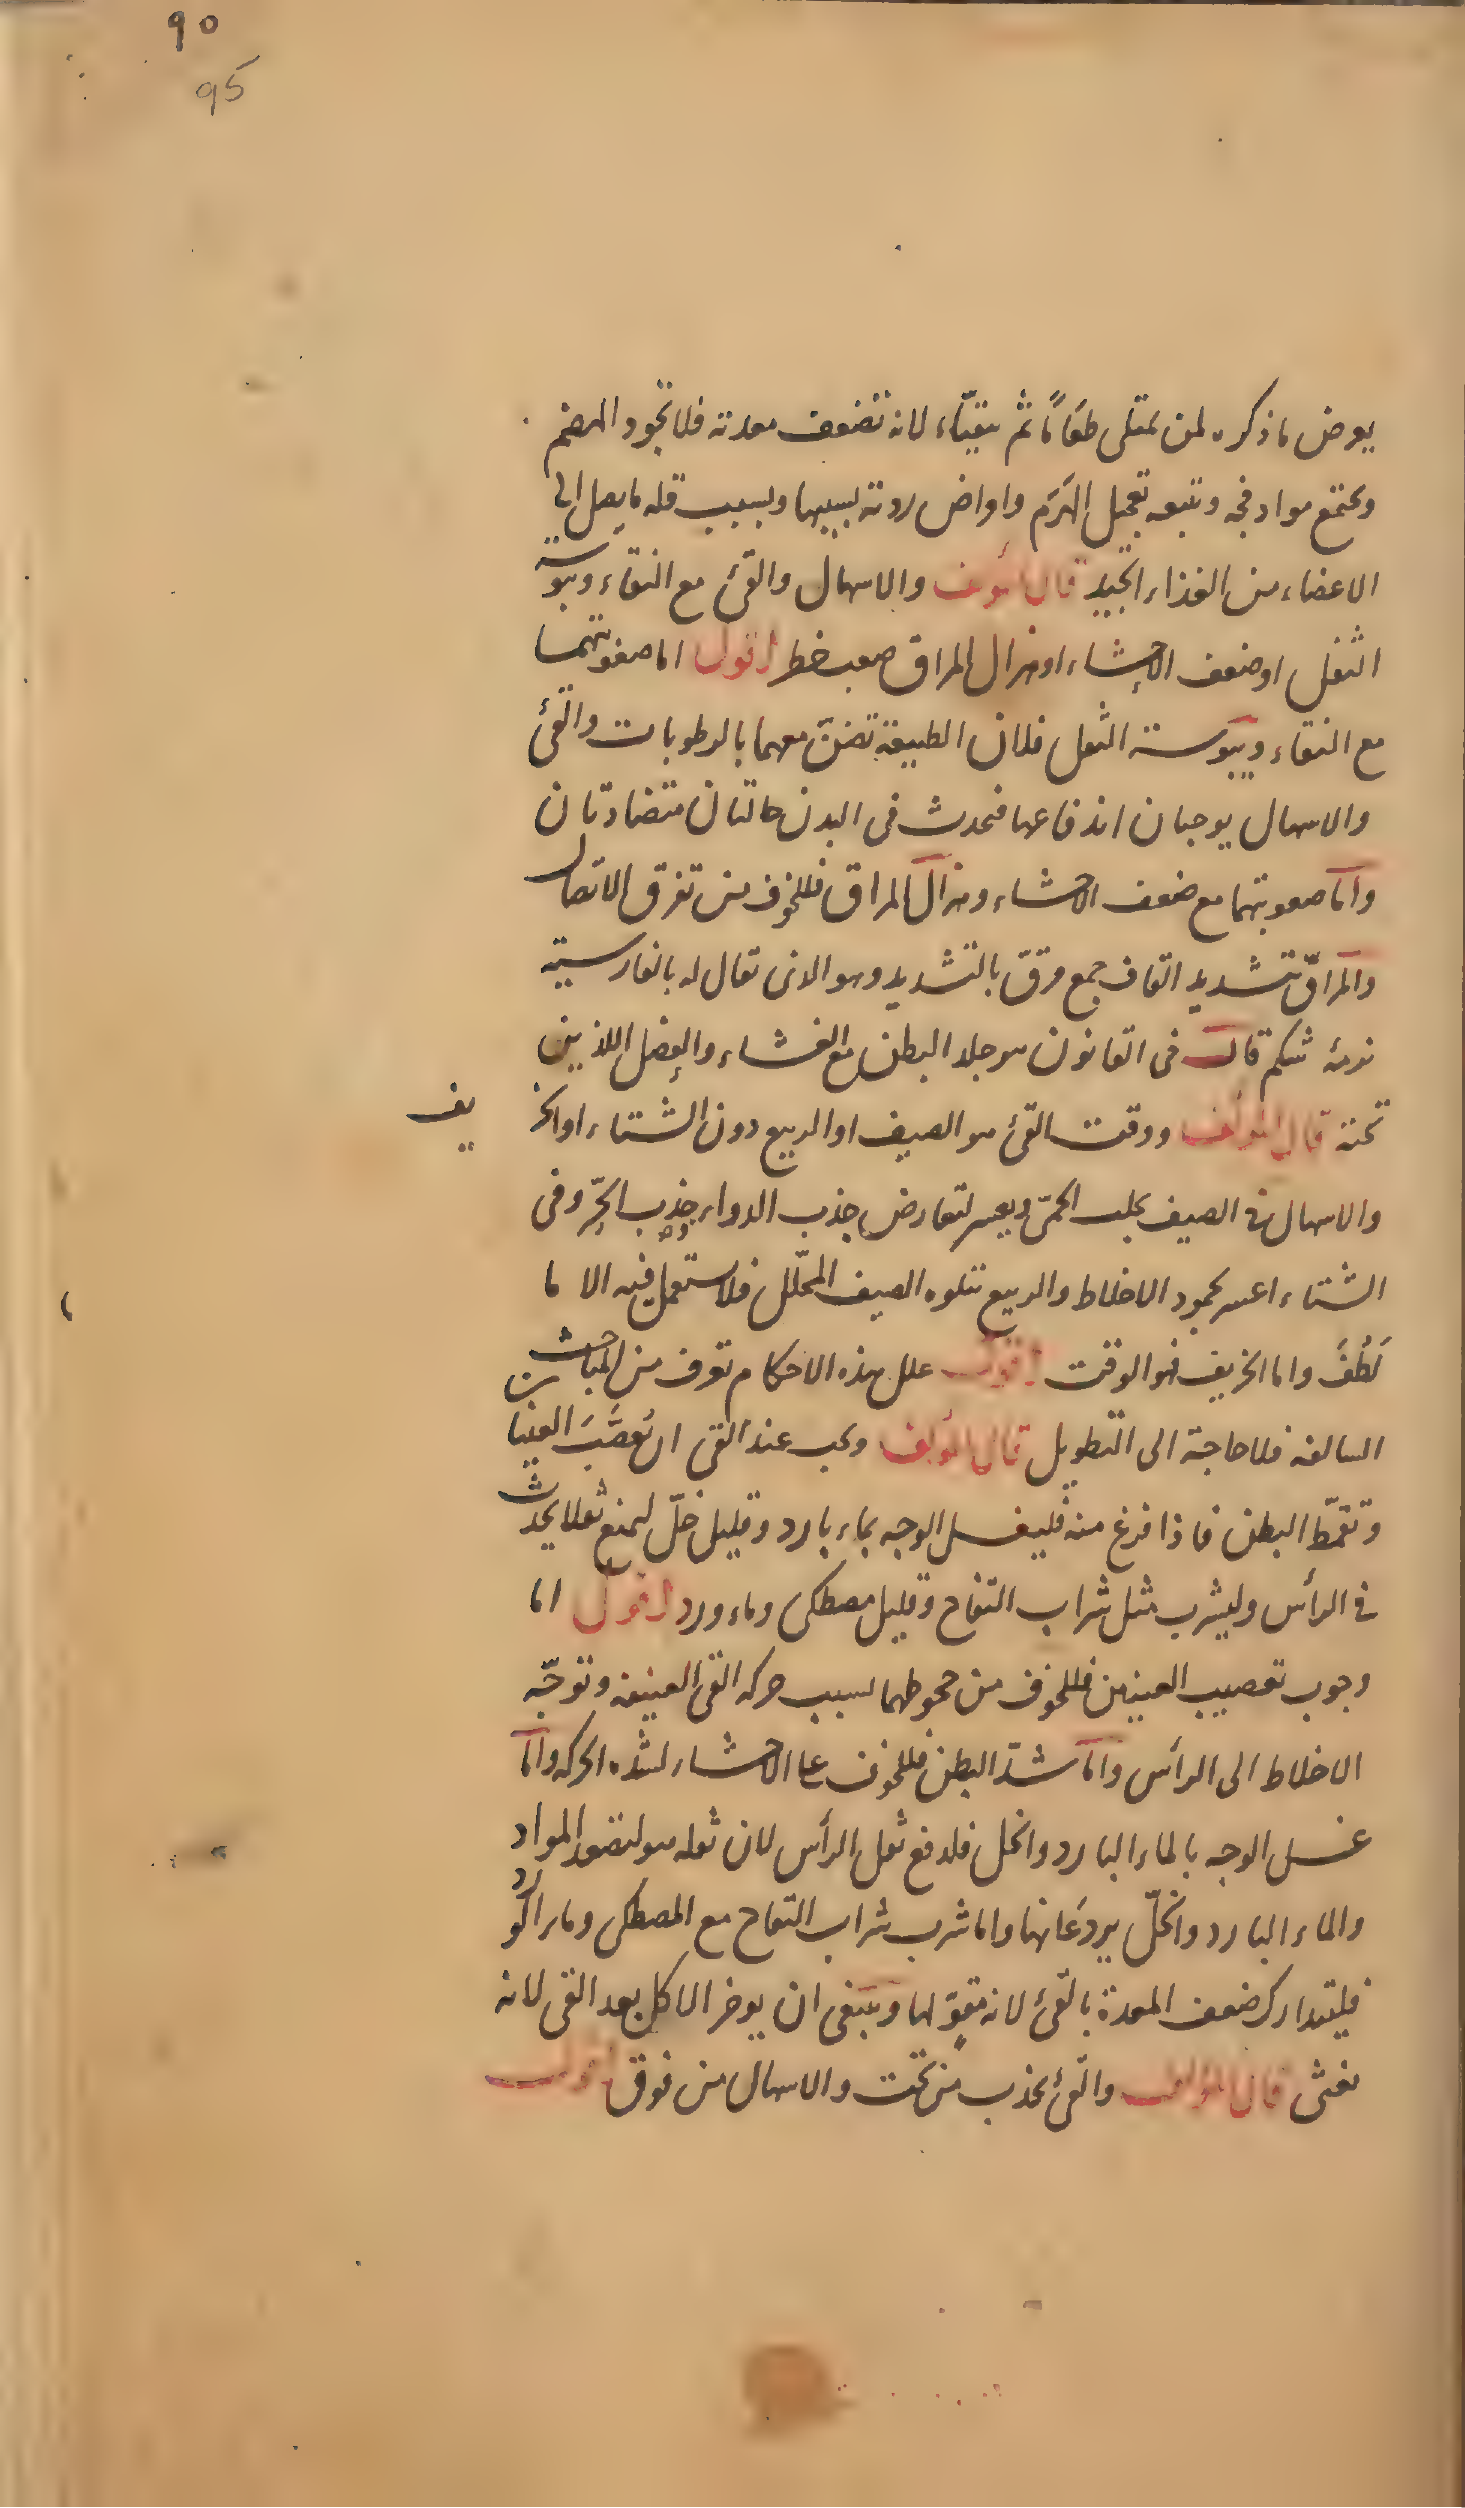 90
95
يعرض ما ذكره لمن يمتلى طعَاماً ثم يتقيّاء لانه تضعف معدته فلا تجود الهضم
وتجتمع مواد فجه وتتبعه تعجيل الهَرَم وامراض ردية بسببها وبسبب قله ما يصل الى
الاعضاء من الغذاء الجيد قال المؤلف والاسهال والقئ مع النقاء ويبوسة
الثفل او ضعف الاحشاء او هزال المراق صعب خطر اقول اما صعوبتهما
مع النقاء ويبوسة الثفل فلان الطبيعة تضنّ معهما بالرطوبات والقئ
والاسهال يوجبان اندفاعها فتحدث فى البدن حالتان متضادتان
وامّا صعوبتهما مع ضعف الاحشاء وهزال المراق فللخوف من تفرق الاتصال
والمراقّ بتشديد القاف جمع مرقّ بالتشديد وهو الذى يقال له بالفارسية
نرمهٔ شكم قال فى القانون هو جلد البطن مع الغشاء والعضل اللذين
تحته قال المؤلف ووقت القئ هو الصيف او الربيع دون الشتاء او الخريف
والاسهال فى الصيف يجلب الحمىّ ويعسر لتعارض جذب الدواء وجذب الحّر وفى
الشتاء اعسر لجمود الاخلاط والربيع تتلوه الصيف المحلّل فلا يستعمل فيه الا ما
لَطُفَ واما الخريف فهو الوقت اقول علل هذه الاحكام تعرف من المباحث
السالفه فلا حاجة الى التطويل قال المؤلف ويجب عند القى ان تُعصَّبَ العينان
وتقمّط البطن فاذا فرغ منه فليغسل الوجه بماء بارد وقليل خلّ ليمنع ثقلا يحدث
فى الرأس وليشرب مثل شراب التفاح وقليل مصطكى وماء ورد اقول اما
وجوب تعصيب العينين فللخوف من جحوظهما بسبب حركه القئ العنيفه وتوجّه
الاخلاط الى الرأس وامّا شدّ البطن فللخوف على الاحشاء لشده الحركه وامّا
غسل الوجه بالماء البارد والخل فلدفع ثقل الرأس لان ثقله هو لتصعد المواد
والماء البارد والخلّ يردعَانها واما شرب شراب التفاح مع المصطكى وماء الورد
فليتدارك ضعف المعدة بالقئ لانه مقوّ لها وينبغى ان يوخر الاكل بعد القى لانه
يغثى قال المؤلف والقئ يجذب من تحت والاسهال من فوق اقول